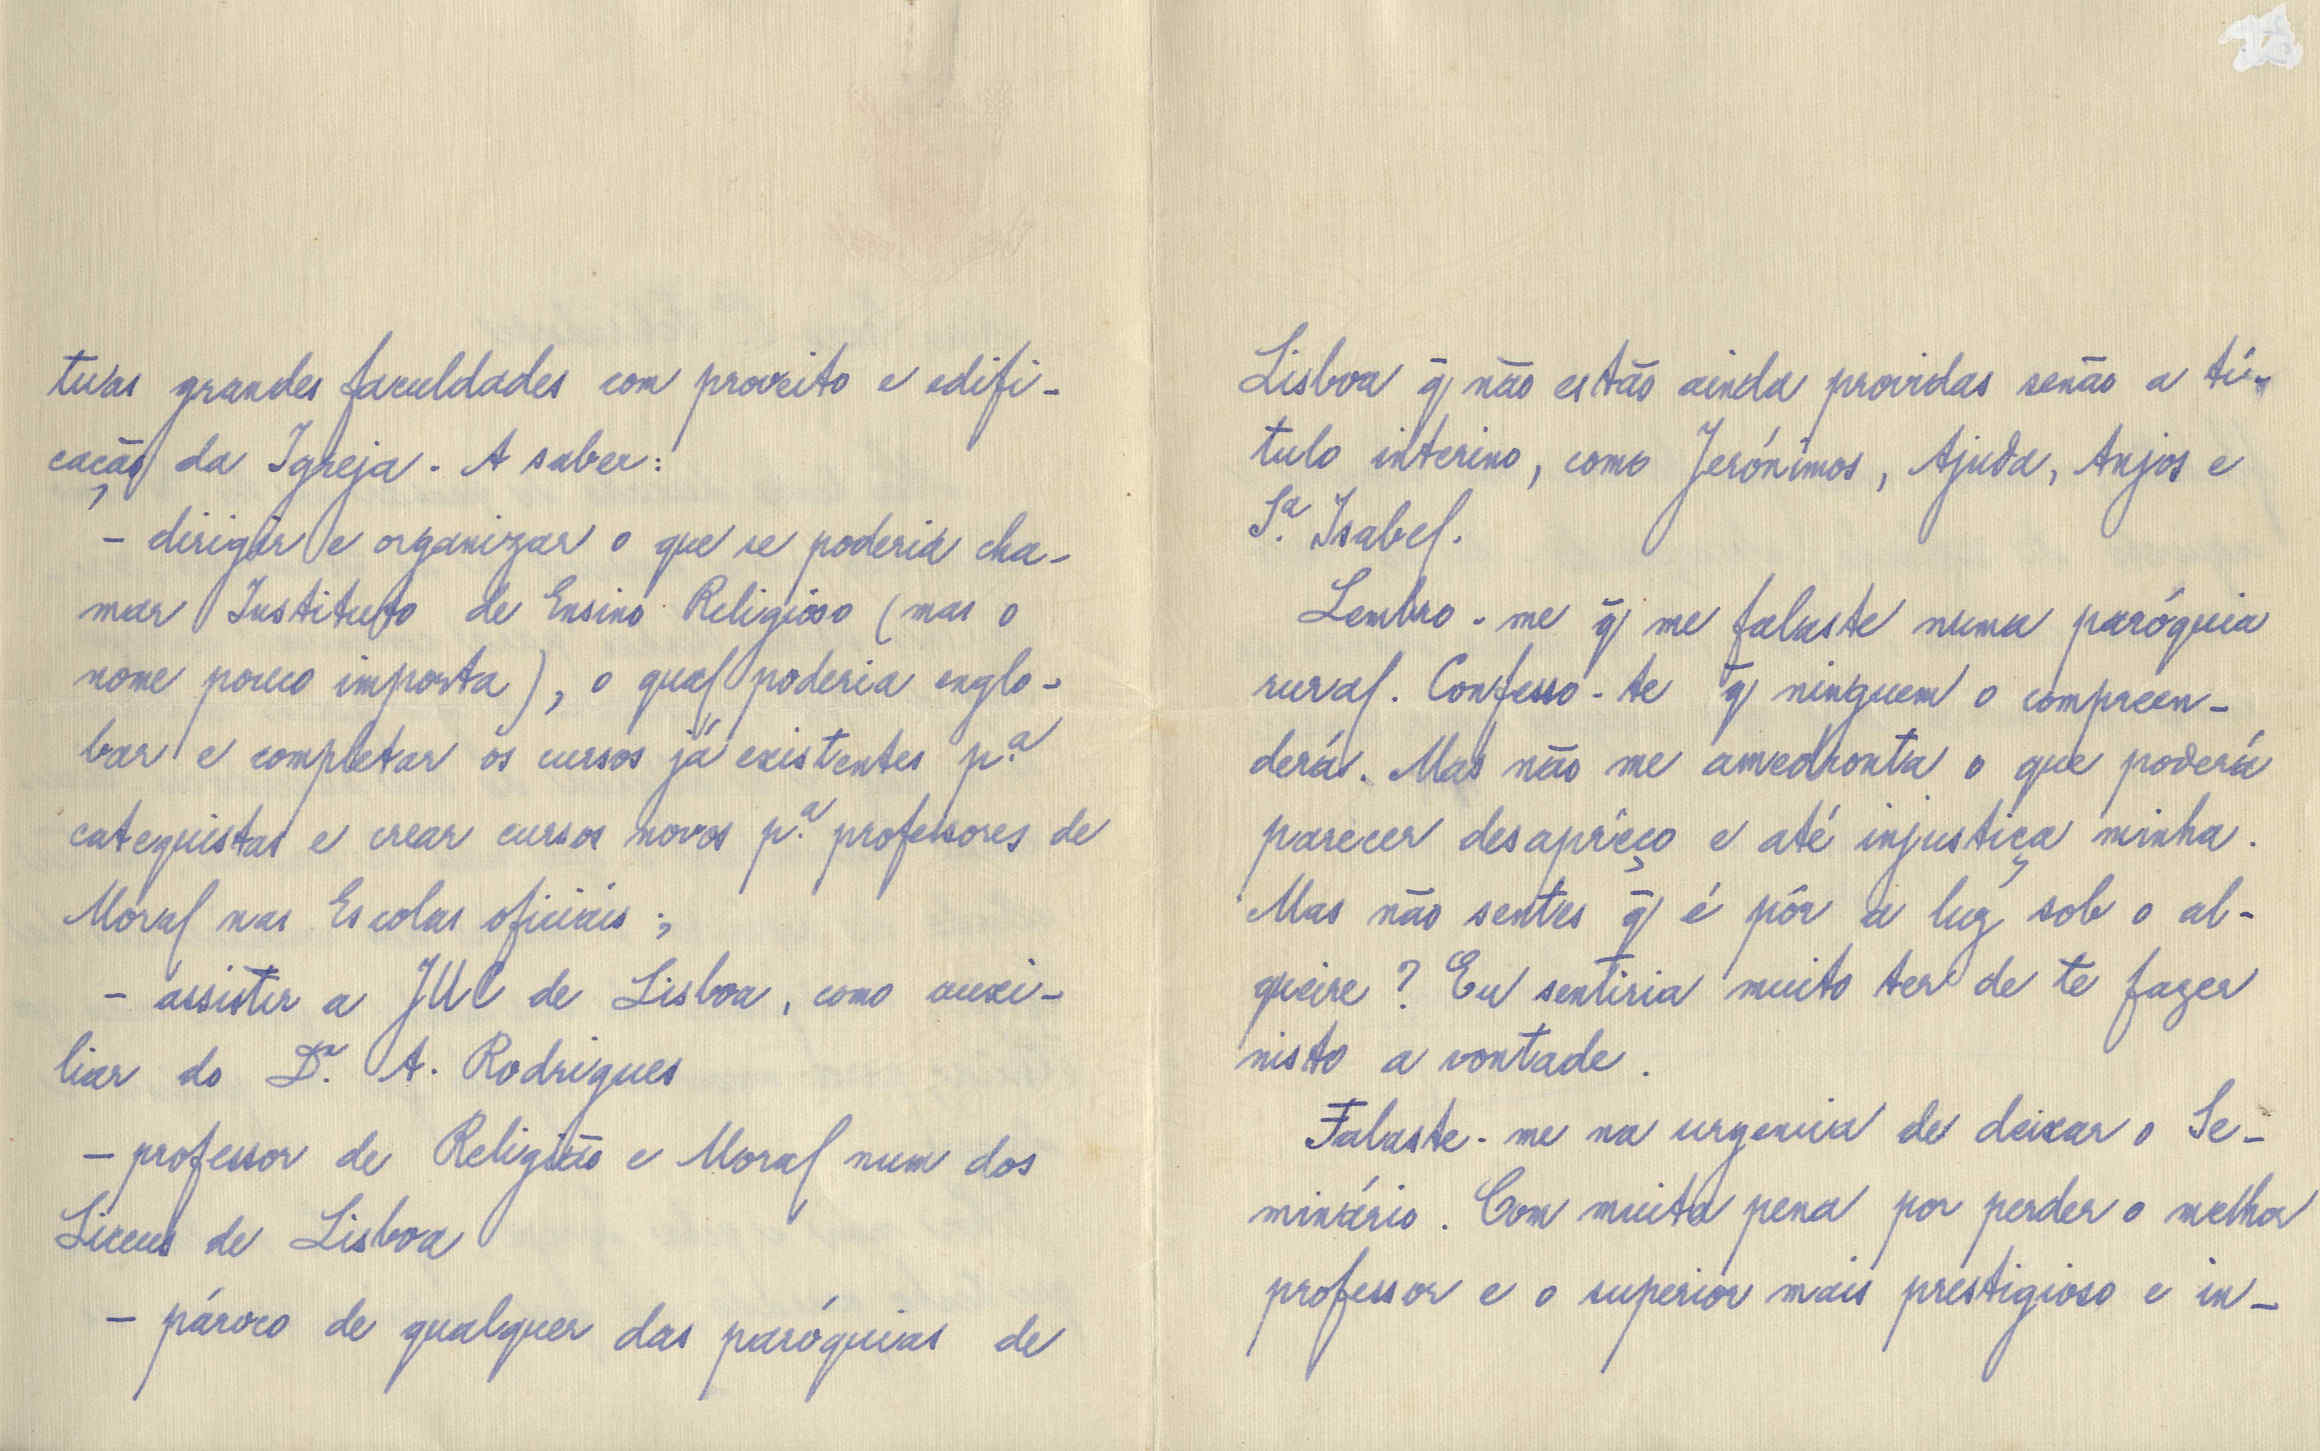 tuas grandes faculdades com proveito e edifi-
cação da Igreja. A saber:
- dirigir e organizar o que se poderia cha-
mar Instituto de Ensino Religioso (mas o
nome pouco importa), o qual poderia englo-
bar e completar os cursos já existentes p.ª
catequistas e crear cursos novos p.ª professores de
Moral nas Escolas oficiais;
- assistir a JUC de Lisboa, como auxi-
liar do Dr. A. Rodrigues
- professor de Religião e Moral num dos
Liceus de Lisboa
- pároco de qualquer das paróquias de
Lisboa q̃ não estão ainda providas senão a tí-
tulo interino, como Jerónimos, Ajuda, Anjos e
S.ª Isabel.
Lembro-me q̃ me falaste numa paróquia
rural. Confesso-te q̃ ninguem o compreen-
derá. Mas não me amedronta o que poderá
parecer desaprêço e até injustiça minha.
Mas não sentes q̃ é pôr a luz sob o al-
queire? Eu sentiria muito ter de te fazer
nisto a vontade.
Falaste-me na urgencia de deixar o Se-
minário. Com muita pena por perder o melhor
professor e o superior mais prestigioso e in-